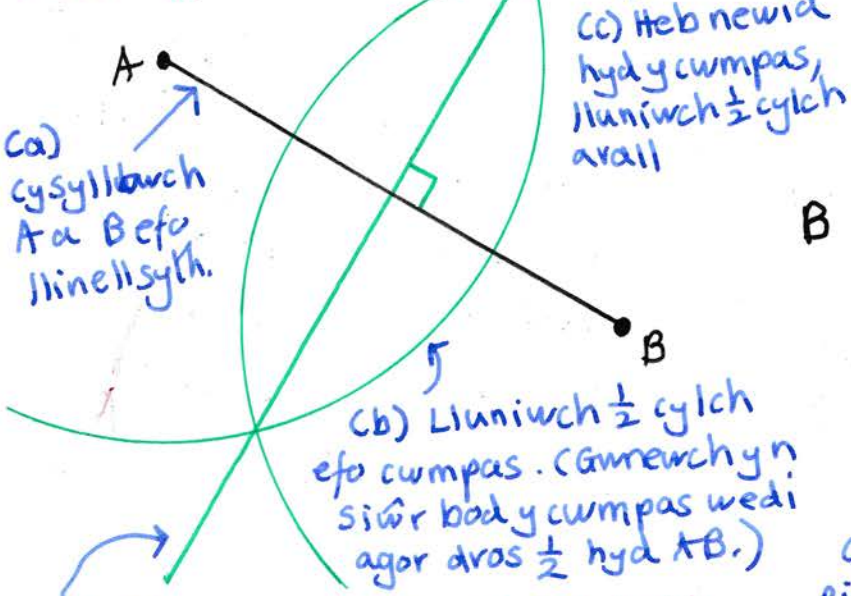 A
(a)
cysylltwch
A a B efo
llinell syth.
(c) Heb newid
hyd y cwmpas,
lluniwch ½ cylch
arall
B
B
(b) Lluniwch ½ cylch
efo cwmpas. (Gwnewch yn
siŵr bod y cwmpas wedi
agor dros ½ hyd AB.)